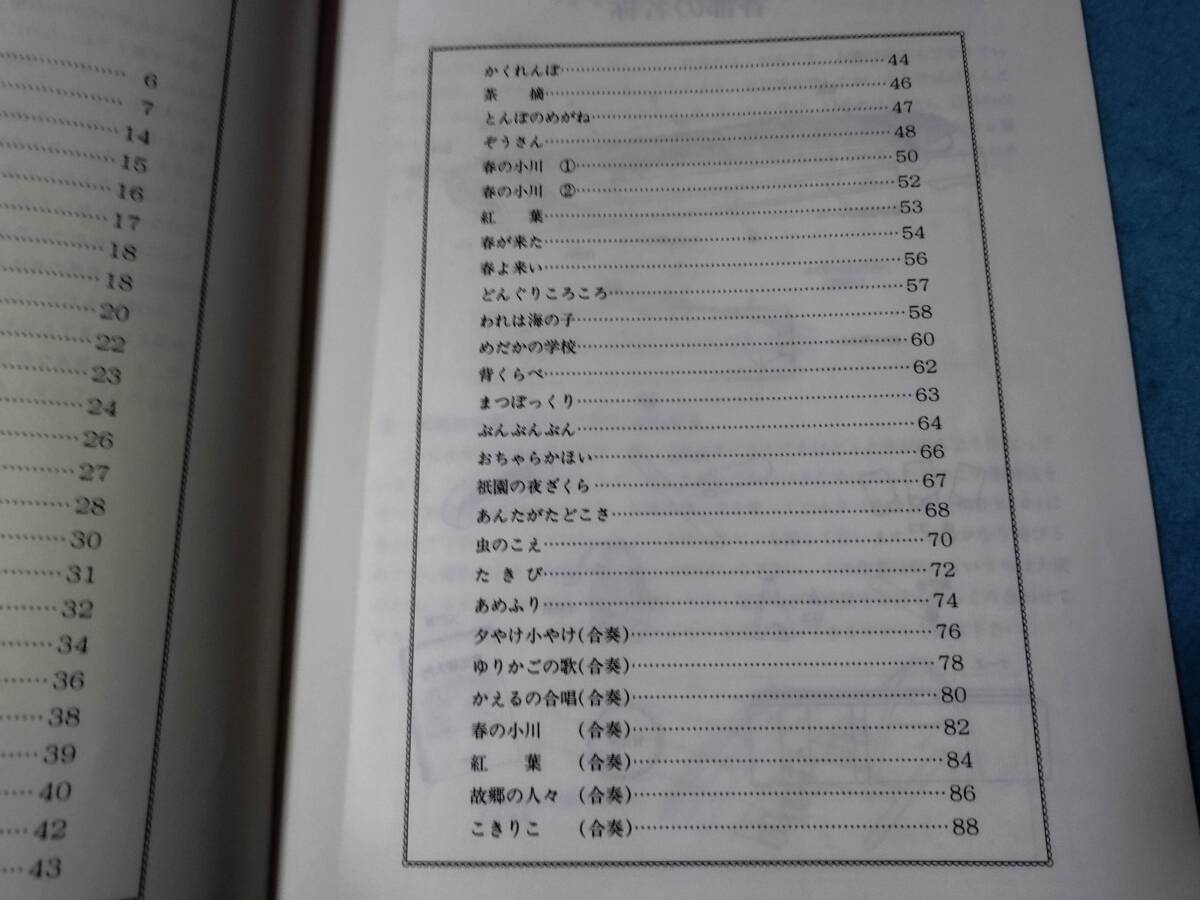 6
7
14
15
16
17
18
18
20
22
23
24
26
27
28
30
31
32
34
36
38
39
40
42
43
かくれんぼ……44
茶　摘……46
とんぼのめがね……47
ぞうさん……48
春の小川　①……50
春の小川　②……52
紅　葉……53
春が来た……54
春よ来い……56
どんぐりころころ……57
われは海の子……58
めだかの学校……60
背くらべ……62
まつぼっくり……63
ぶんぶんぶん……64
おちゃらかほい……66
祇園の夜ざくら……67
あんたがたどこさ……68
虫のこえ……70
た き び……72
あめふり……74
夕やけ小やけ(合奏)……76
ゆりかごの歌(合奏)……78
かえるの合唱(合奏)……80
春の小川　(合奏)……82
紅　葉　(合奏)……84
故郷の人々　(合奏)……86
こきりこ　(合奏)……88